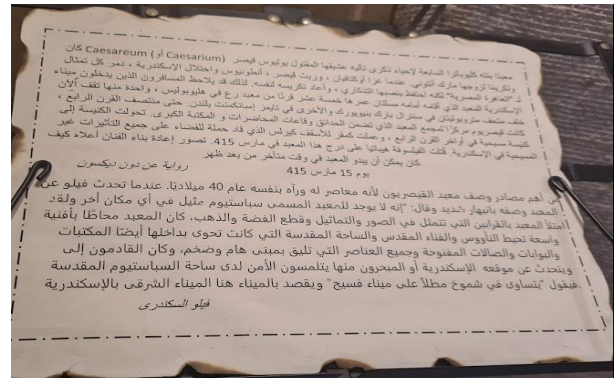 معبدًا بنته كليوباترا السابعة لإحياء ذكرى تأليه عشيقها المقتول يوليوس قيصر Caesareum (أو Caesarium) كان
وتكريمًا لزوجها مارك أنتوني. عندما غزا أوكتافيان، وريث قيصر، أنطونيوس واحتلال الإسكندرية، دمر كل تمثال
التذكاري، وأعاد تكريسه لنفسه. لذلك قد يلاحظ المسافرون الذين يدخلون ميناء
الإسكندرية المعبد الذي أقامه أمامه مسلتان عمرها خمسة عشر قرنًا من معبد رع في هليوبوليس، واحدة منها تقف الآن
خلف متحف متروبوليتان في سنترال بارك بنيويورك والأخرى في تايمز إمبانكمنت بلندن. حتى منتصف القرن الرابع،
كانت قيصريوم مركزًا لمجمع المعبد الذي تضمن الحدائق وقاعات المحاضرات و المكتبة الكبرى. تحولت الكنيسة إلى
كنيسة مسيحية في أواخر القرن الرابع، وعملت كمقر للأسقف كيرلس الذي قاد حملة للقضاء على جميع التأثيرات غير
المسيحية في الإسكندرية. قُتلت الفيلسوفة هيباتيا على درج هذا المعبد في مارس 415. تصور إعادة بناء الفنان أعلاه كيف
كان يمكن أن يبدو المعبد في وقت متأخر من بعد ظهر
يوم 15 مارس 415
رواية عن دون ديكسون
من أهم مصادر وصف معبد القيصريون لأنه معاصر له ورآه بنفسه عام 40 ميلاديًا. عندما تحدث فيلو عن
المعبد وصفه بانبهار شديد وقال: "إنه لا يوجد للمعبد المسمى سباستيوم مثيل في أي مكان آخر ولقد
امتلأ المعبد بالقرابين التي تتمثل في الصور والتماثيل وقطع الفضة والذهب، كان المعبد محاطًا بأفنية
واسعة تحيط الناؤوس والفناء المقدس والساحة المقدسة التي كانت تحوى بداخلها أيضًا المكتبات
والبوابات والصالات المفتوحة وجميع العناصر التي تليق بمبنى هام وضخم، وكان القادمون إلى
الإسكندرية أو المبحرون منها يتلمسون الأمن لدى ساحة السباستيوم المقدسة ويتحدث عن موقعه
فيقول "يتساوى في شموخ مطلاً على ميناء فسيح" ويقصد بالميناء هنا الميناء الشرقى بالإسكندرية
فيلو السكندرى